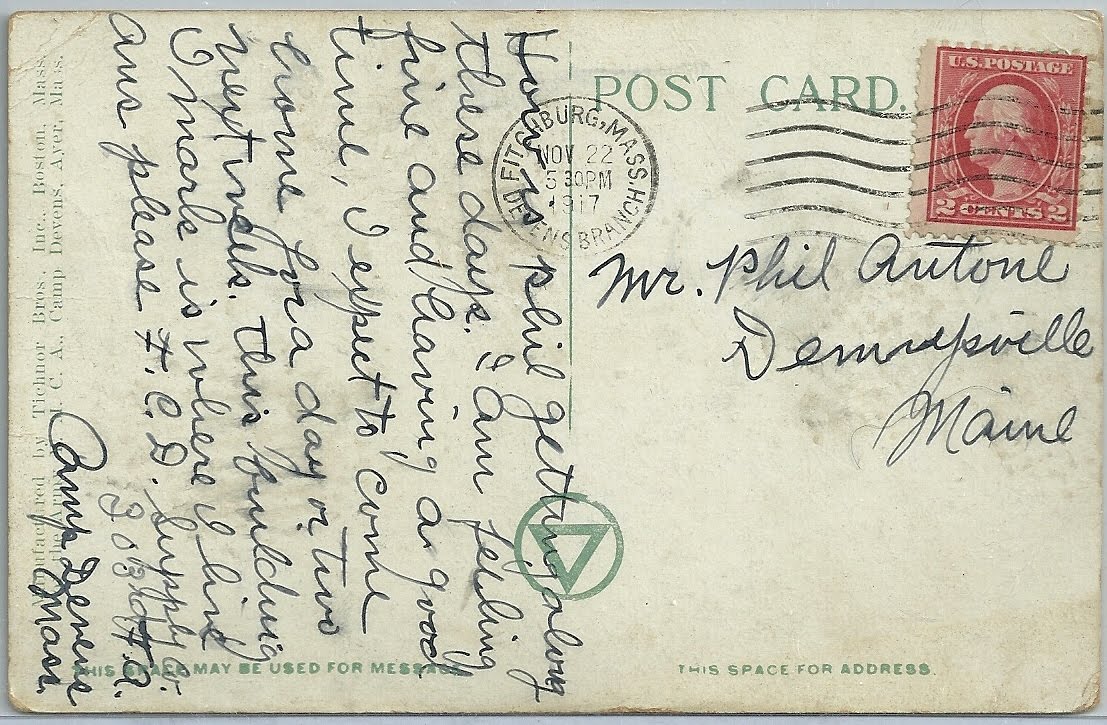 POST CARD.
U.S. POSTAGE
2 CENTS 2
FITCHBURG, MASS.
NOV 22
5 30 PM
1917
DEVENS BRANCH
Mr. Phil Antone
Dennysville
Maine
How is phil getting along
these days. I am feeling
fine and having a good
time, I expect to come
home for a day or two
next week. this building
I mark is where I live
ans please H. C. D. Supply Co.
303rd H. A.
Camp Devens
Mass.
Manufactured by Tichnor Bros., Inc., Boston, Mass.
the Army Y. M. C. A., Camp Devens, Ayer, Mass.
THIS SPACE MAY BE USED FOR MESSAGE.
THIS SPACE FOR ADDRESS.